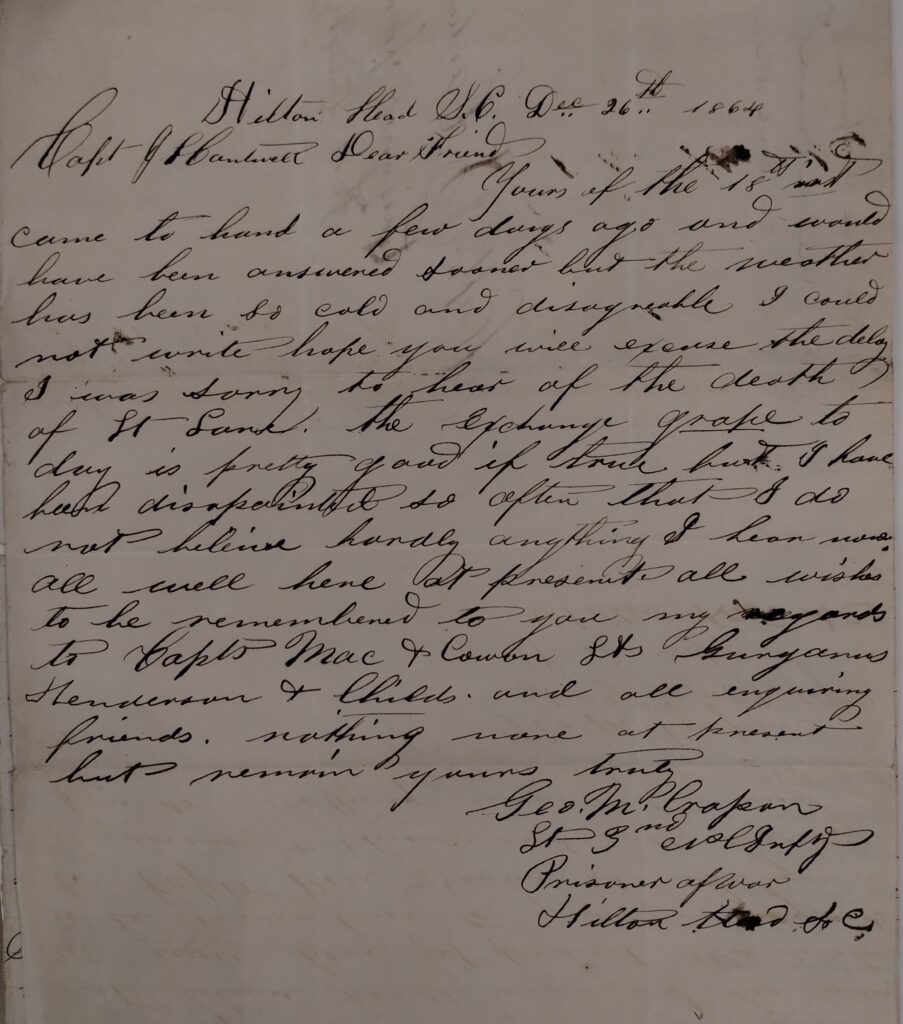 Hilton Head S.C. Dec 26th 1864
Capt J L Cantwell Dear Friend
Yours of the 18th inst
came to hand a few days ago and would
have been answered sooner but the weather
has been so cold and disagreable I could
not write hope you will excuse the delay
I was sorry to hear of the death
of Lt Lane. the Exchange grape to
day is pretty good if true but I have
been disapointed so often that I do
not beleive hardly anything I hear now.
all well here at present all wishes
to be remembered to you my regards
to Capts Mac & Cowan Lts Gurganus
Henderson & Childs. and all enquiring
friends. nothing more at present
but remain yours truly
Geo. M. Crapon
Lt 3nd NC Infty
Prisoner of war
Hilton Head So C.